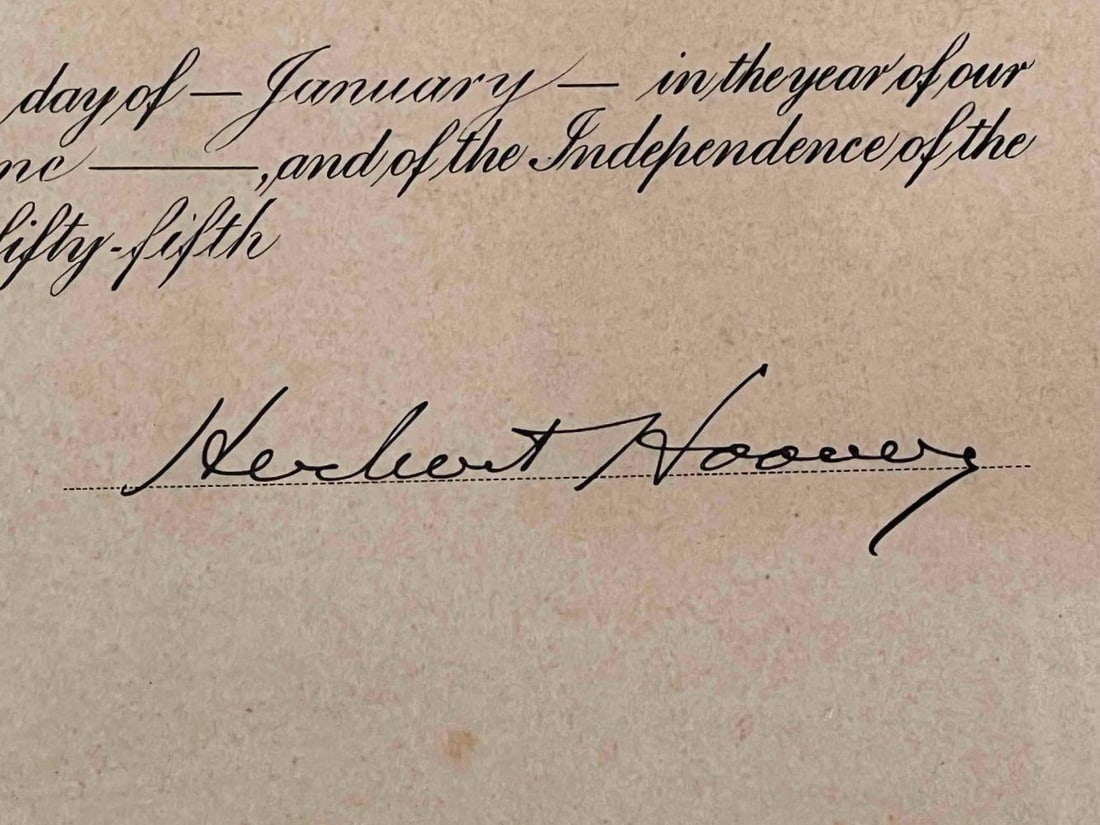 day of — January — in the year of our
——, and of the Independence of the
fifty-fifth
Herbert Hoover